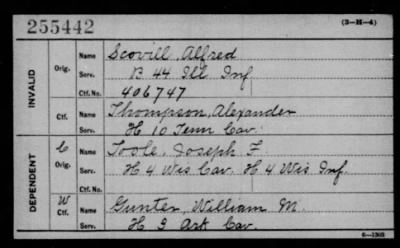 255442 (3-H-4)
INVALID
Orig.
Name Scovill, Alfred
Serv. B 44 Ill Inf
Ctf. No. 406747
Ctf.
Name Thompson, Alexander
Serv. H 10 Tenn Cav.
DEPENDENT
C
Orig.
Name Toole, Joseph F.
Serv. H 4 Wis Cav. H 4 Wis Inf.
Ctf. No.
W
Ctf.
Name Gunter, William M.
Serv. H 3 Ark Cav.